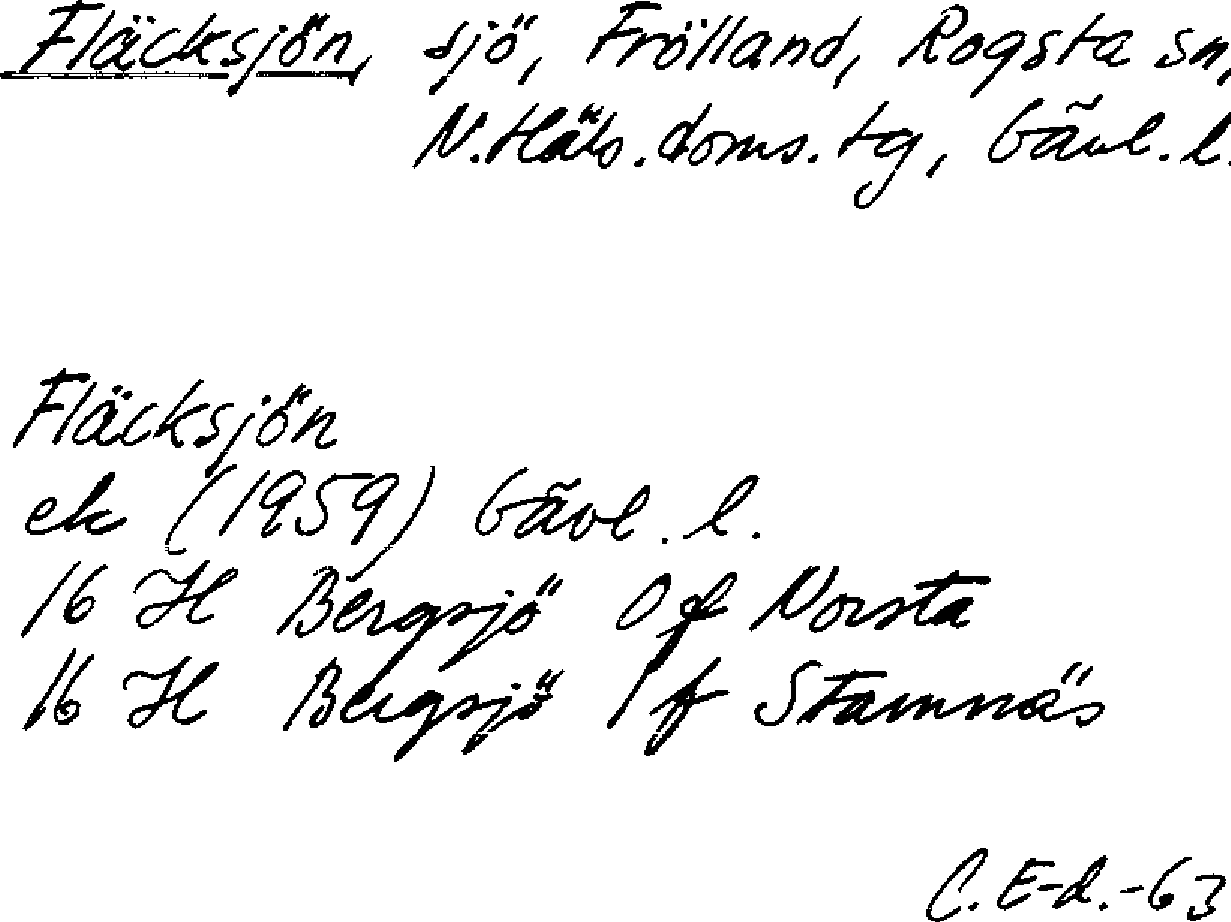 Fläcksjön, sjö, Frölland, Rogsta sn,
N. Häls. doms. tg, Gävl. l.
Fläcksjön
ek (1959) Gävl. l.
16 H Bergsjö 0 f Norsta
16 H Bergsjö 1 f Stamnäs
C. E-d. -63